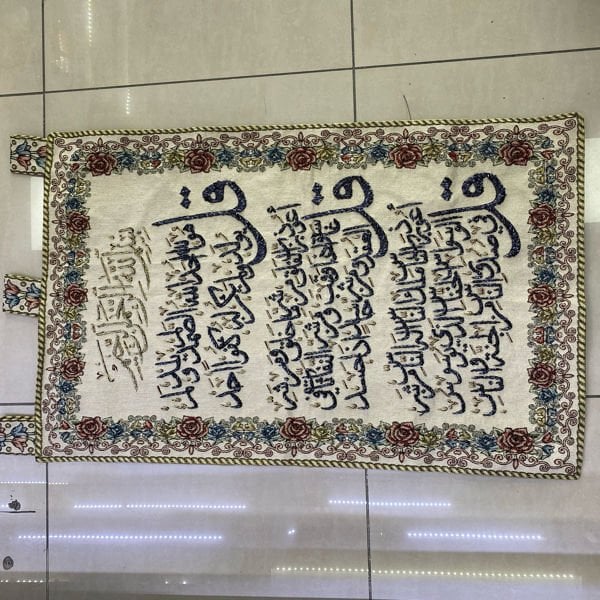 بسم الله الرحمن الرحيم
قل هو الله أحد الله الصمد لم يلد و
لم يولد ولم يكن له كفوا أحد
قل أعوذ برب الفلق من شر ما خلق ومن شر
غاسق إذا وقب ومن شر النفاثات في
العقد ومن شر حاسد إذا حسد
قل أعوذ برب الناس ملك الناس إله الناس من شر
الوسواس الخناس الذي يوسوس
في صدور الناس من الجنة والناس